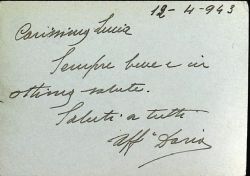 12-4-943
Carissimo Lucio
Sempre bene e in
ottima salute.
Saluti a tutti
Aff Dario